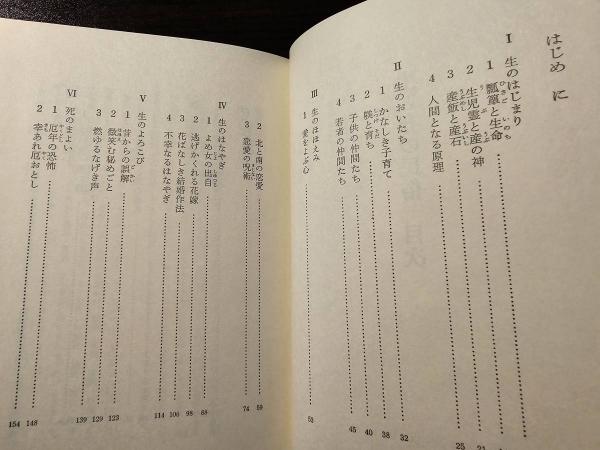 はじめに
Ⅰ 生のはじまり
1 瓢簞と生命
2 生児霊と産の神
3 産飯と産石
4 人間となる原理 25
Ⅱ 生のおいたち
1 かなしき子育て 32
2 躾と育ち 38
3 子供の仲間たち 40
4 若者の仲間たち 45
Ⅲ 生のほほえみ
1 愛をよぶ心 53
2 北と南の恋愛 59
3 恋愛の呪術 74
Ⅳ 生のはなやぎ
1 よめ女の出自 88
2 逃げかくれる花嫁 98
3 花ばなしき結婚作法 106
4 不幸なるはなやぎ 114
Ⅴ 生のよろこび
1 昔からの誤解 123
2 微笑む秘めごと 129
3 燃ゆるなげき声 139
Ⅵ 死のまよい
1 厄年の恐怖 148
2 幸あれ厄おとし 154